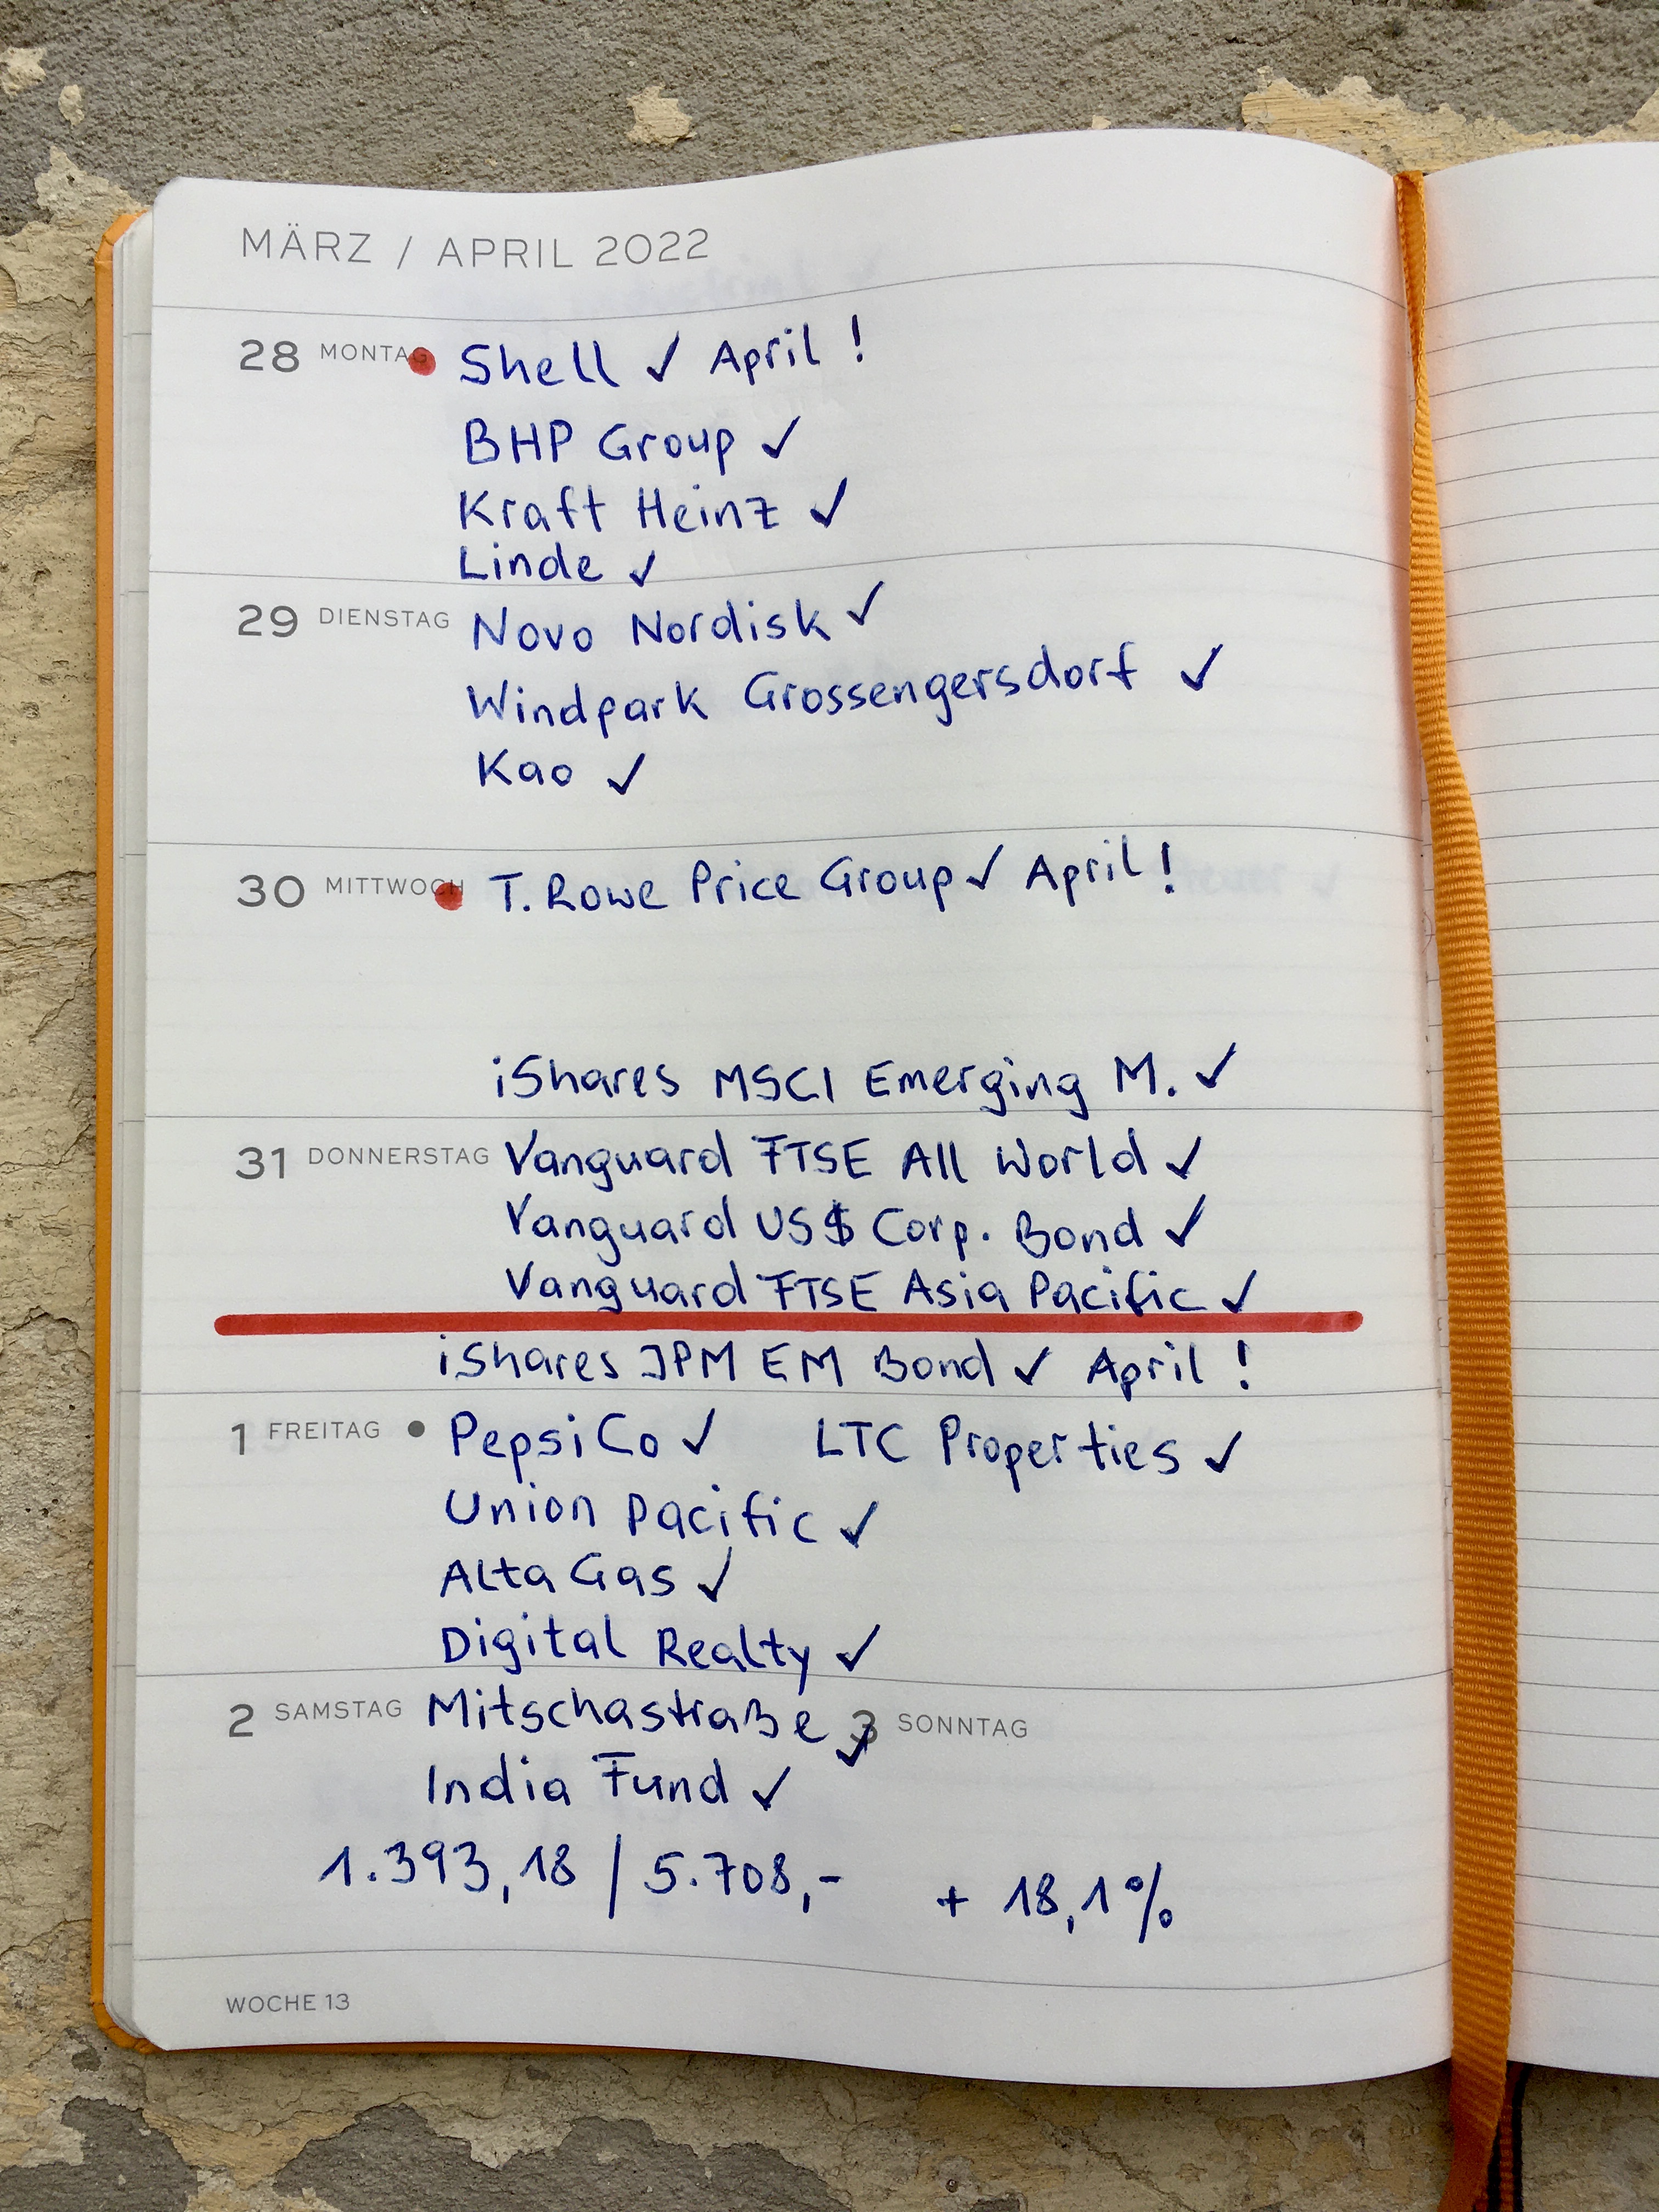 MÄRZ / APRIL 2022
28 MONTAG Shell ✓ April !
BHP Group ✓
Kraft Heinz ✓
Linde ✓
29 DIENSTAG Novo Nordisk ✓
Windpark Grossengersdorf ✓
Kao ✓
30 MITTWOCH T. Rowe Price Group ✓ April !
iShares MSCI Emerging M. ✓
31 DONNERSTAG Vanguard FTSE All World ✓
Vanguard US$ Corp. Bond ✓
Vanguard FTSE Asia Pacific ✓
iShares JPM EM Bond ✓ April !
1 FREITAG • PepsiCo ✓ LTC Properties ✓
Union Pacific ✓
Alta Gas ✓
Digital Realty ✓
2 SAMSTAG Mitschastraße ✓ 3 SONNTAG
India Fund ✓
1.393,18 / 5.708,- + 18,1%
WOCHE 13